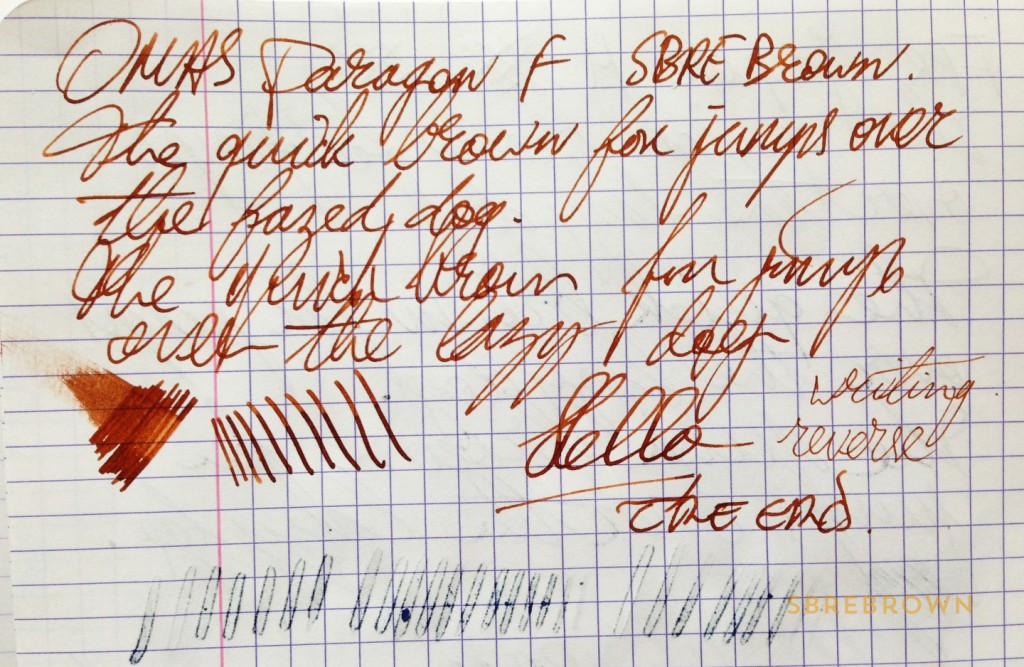 OMAS Paragon F SBREBrown.
The quick brown fox jumps over
the lazed dog.
The quick brown fox jumps
over the lazy dog
Hello
writing
reverse
the end.
SBREBROWN